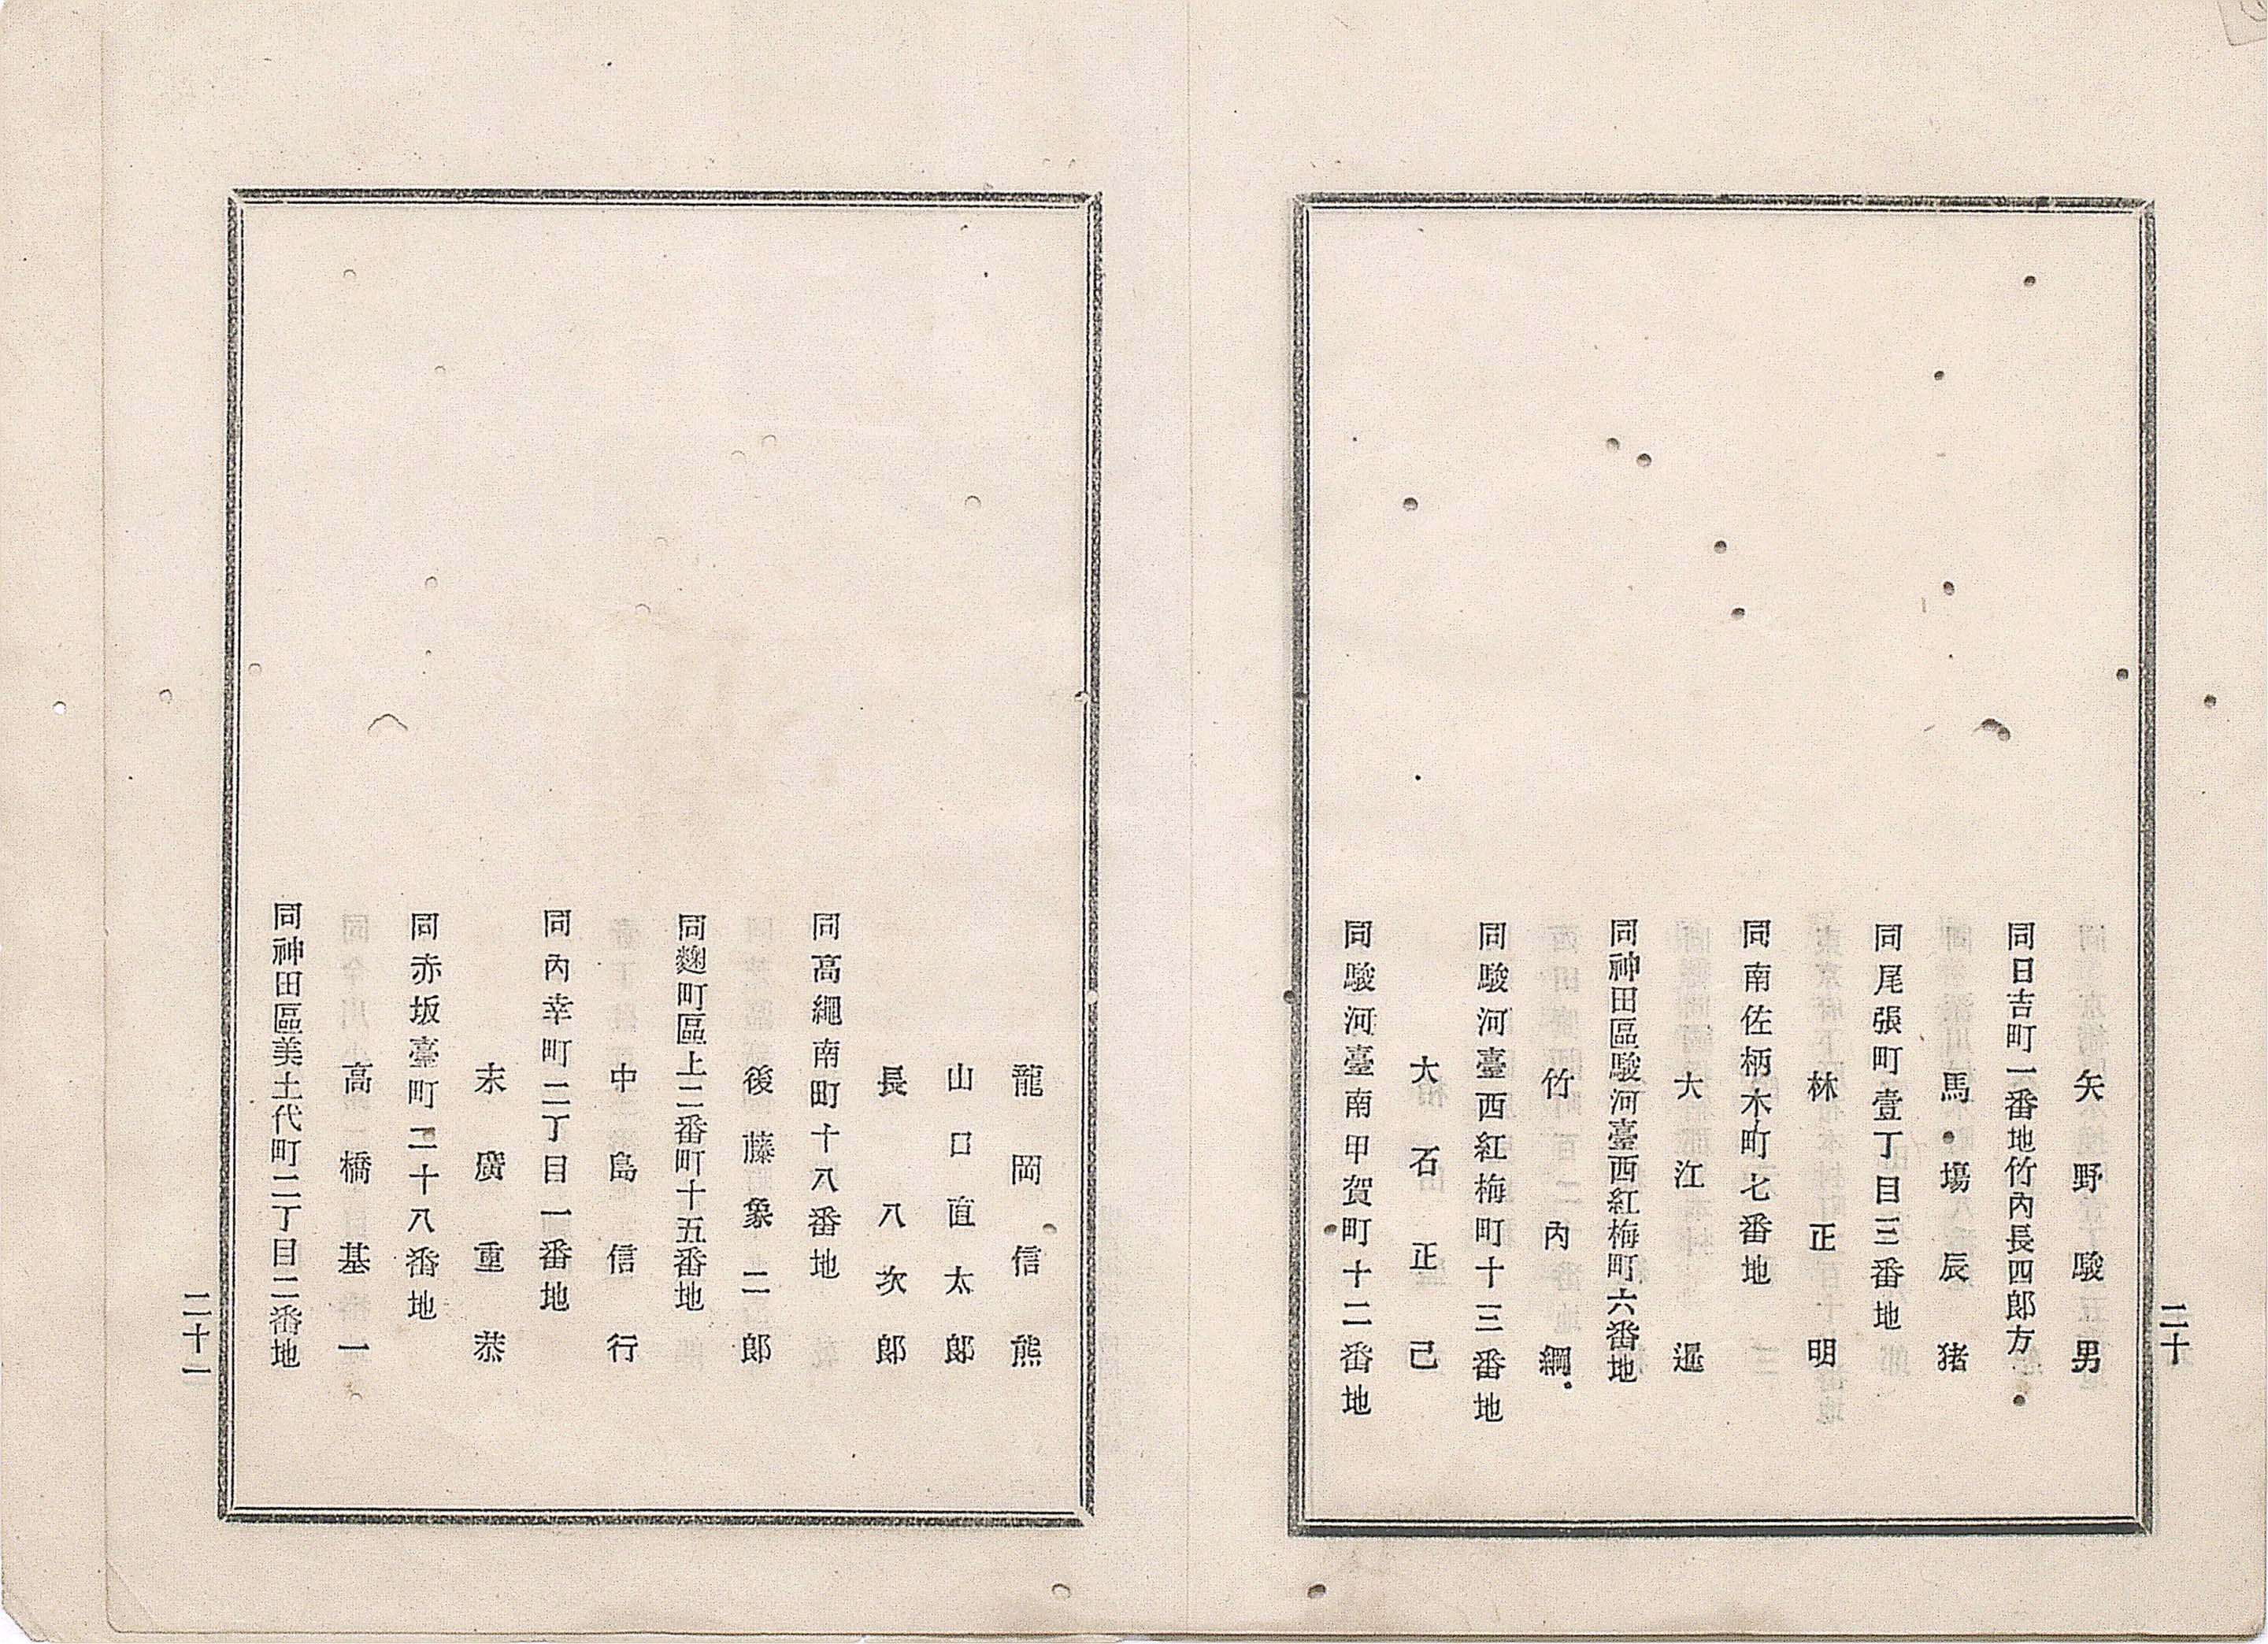 二十
矢野駿男
同日吉町一番地竹內長四郎方
馬場辰猪
同尾張町壹丁目三番地
林正明
同南佐柄木町七番地
大江遝
同神田區駿河臺西紅梅町六番地
竹內綱
同駿河臺西紅梅町十三番地
大石正己
同駿河臺南甲賀町十二番地
龍岡信熊
山口直太郎
長八次郎
同高繩南町十八番地
後藤象二郎
同麴町區上二番町十五番地
中島信行
同內幸町二丁目一番地
末廣重恭
同赤坂臺町二十八番地
高橋基一
同神田區美土代町二丁目二番地
二十一